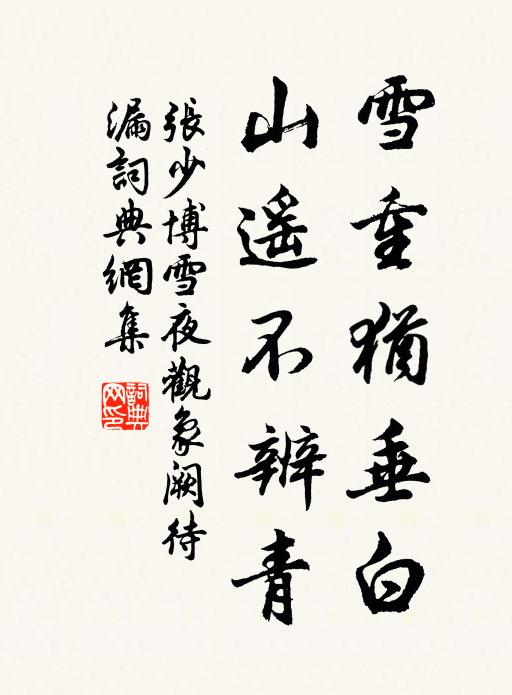 雪重猶垂白
山遥不辨青
張少博雪夜觀象阙待
漏詞典網集
詞典
网印